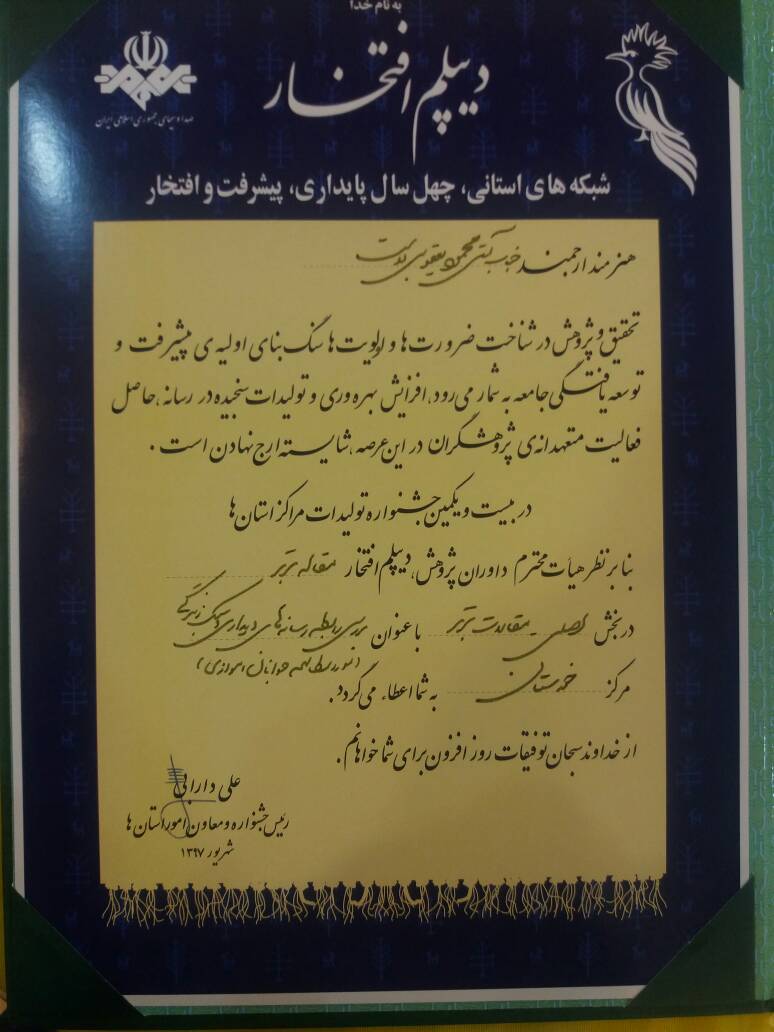 به نام خدا
دیپلم افتخار
صدا و سیمای جمهوری اسلامی ایران
شبکه های استانی، چهل سال پایداری، پیشرفت و افتخار
هنرمند ارجمند جناب آقای محمود یعقوبی دوست
تحقیق و پژوهش در شناخت ضرورت ها و اولویت ها سنگ بنای اولیه ی پیشرفت و
توسعه یافتگی جامعه به شمار می رود، افزایش بهره وری و تولیدات سنجیده در رسانه، حاصل
فعالیت متعهدانه ی پژوهشگران در این عرصه، شایسته ارج نهادن است.
در بیست و یکمین جشنواره تولیدات مراکز استان ها
بنا بر نظر هیأت محترم داوران پژوهش، دیپلم افتخار مقاله برتر
در بخش اصلی - مقالات برتر با عنوان بررسی رابطه رسانه های دیداری و سبک زندگی
(مورد مطالعه جوانان اهوازی)
مرکز خوزستان به شما اعطاء می گردد.
از خداوند سبحان توفیقات روز افزون برای شما خواهانم.
علی دارابی
رئیس جشنواره و معاون امور استان ها
شهریور ۱۳۹۷